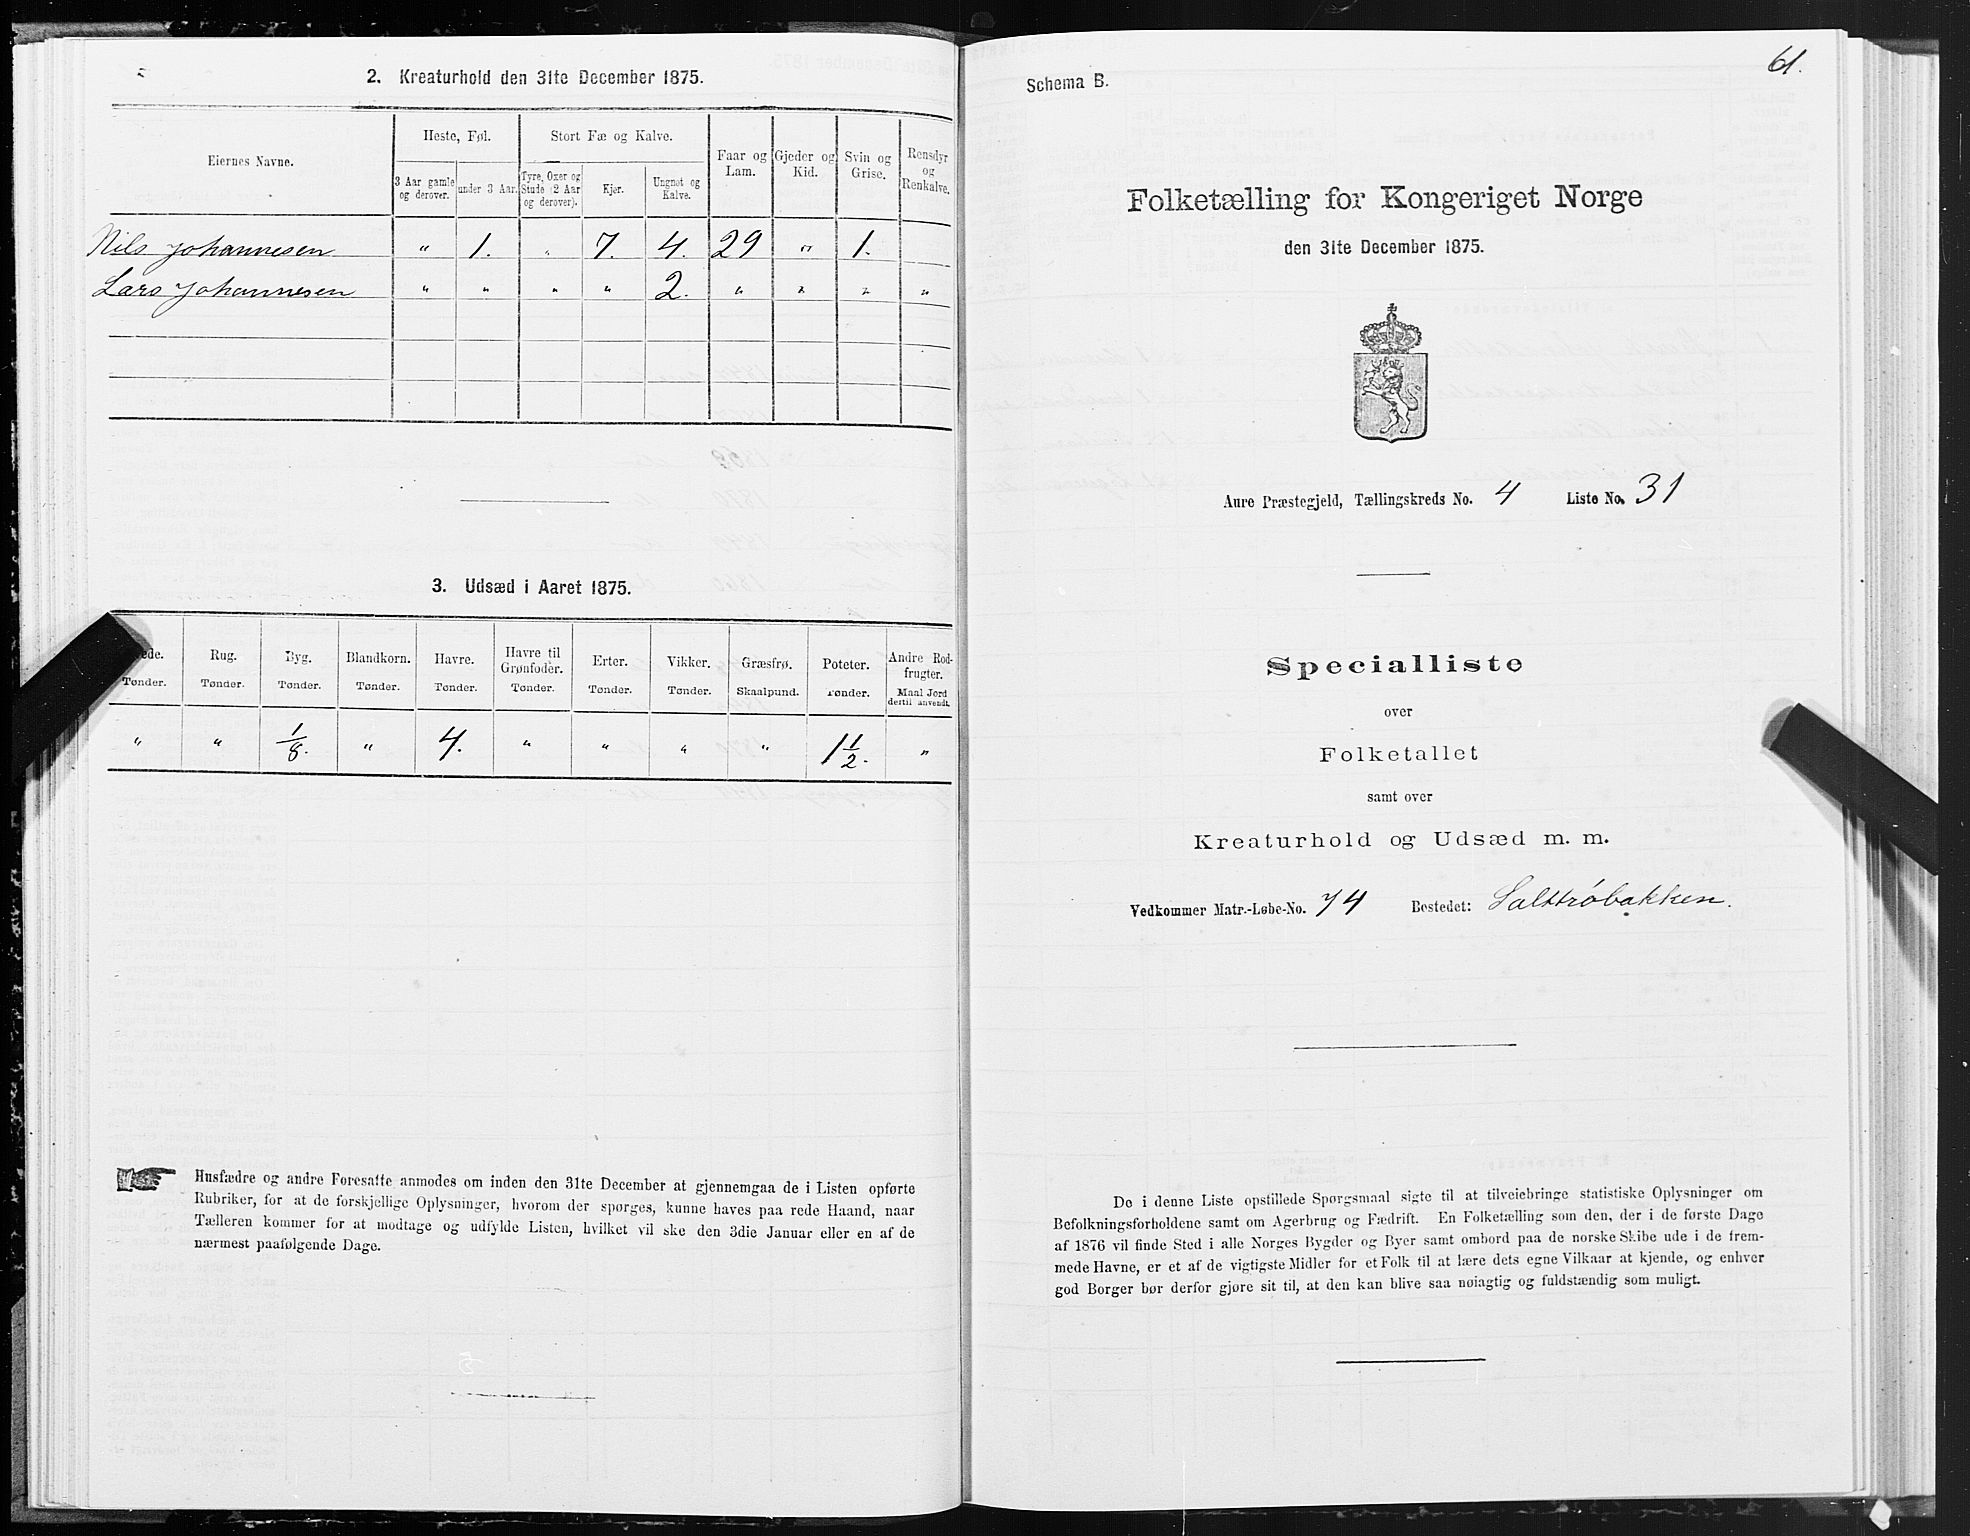 2. Kreaturhold den 31te December 1875.
Eiernes Navne.
Heste, Føl.
Stort Fæ og Kalve.
Faar og Lam.
Gjeder og Kid.
Svin og Grise.
Rensdyr og Renkalve.
3 Aar gamle og derover.
under 3 Aar.
Tyre, Oxer og Stude (2 Aar og derover).
Kjør.
Ungnøt og Kalve.
Nils Johannesen " 1. " 7. 4. 29 " 1.
Lars Johannesen " " " " 2. " " " "
3. Udsæd i Aaret 1875.
Rug. Tønder.
Byg. Tønder.
Blandkorn. Tønder.
Havre. Tønder.
Havre til Grønfoder. Tønder.
Erter. Tønder.
Vikker. Tønder.
Græsfrø. Skaalpund.
Poteter. Tønder.
Andre Rodfrugter. Maal Jord dertil anvendt.
" " 1/8. " 4. " " " " 1 1/2. "
Husfædre og andre Foresatte anmodes om inden den 31te December at gjennemgaa de i Listen opførte
Rubriker, for at de forskjellige Oplysninger, hvorom der spørges, kunne haves paa rede Haand, naar
Tælleren kommer for at modtage og udfylde Listen, hvilket vil ske den 3die Januar eller en af de
nærmest paafølgende Dage.
61.
Schema B.
Folketælling for Kongeriget Norge
den 31te December 1875.
Aure Præstegjeld, Tællingskreds No. 4 Liste No. 31
Specialliste
over
Folketallet
samt over
Kreaturhold og Udsæd m. m.
Vedkommer Matr.-Løbe-No. 74 Bostedet: Salttrøbakken.
De i denne Liste opstillede Spørgsmaal sigte til at tilveiebringe statistiske Oplysninger om
Befolkningsforholdene samt om Agerbrug og Fædrift. En Folketælling som den, der i de første Dage
af 1876 vil finde Sted i alle Norges Bygder og Byer samt ombord paa de norske Skibe ude i de frem-
mede Havne, er et af de vigtigste Midler for et Folk til at lære dets egne Vilkaar at kjende, og enhver
god Borger bør derfor gjøre sit til, at den kan blive saa nøiagtig og fuldstændig som muligt.